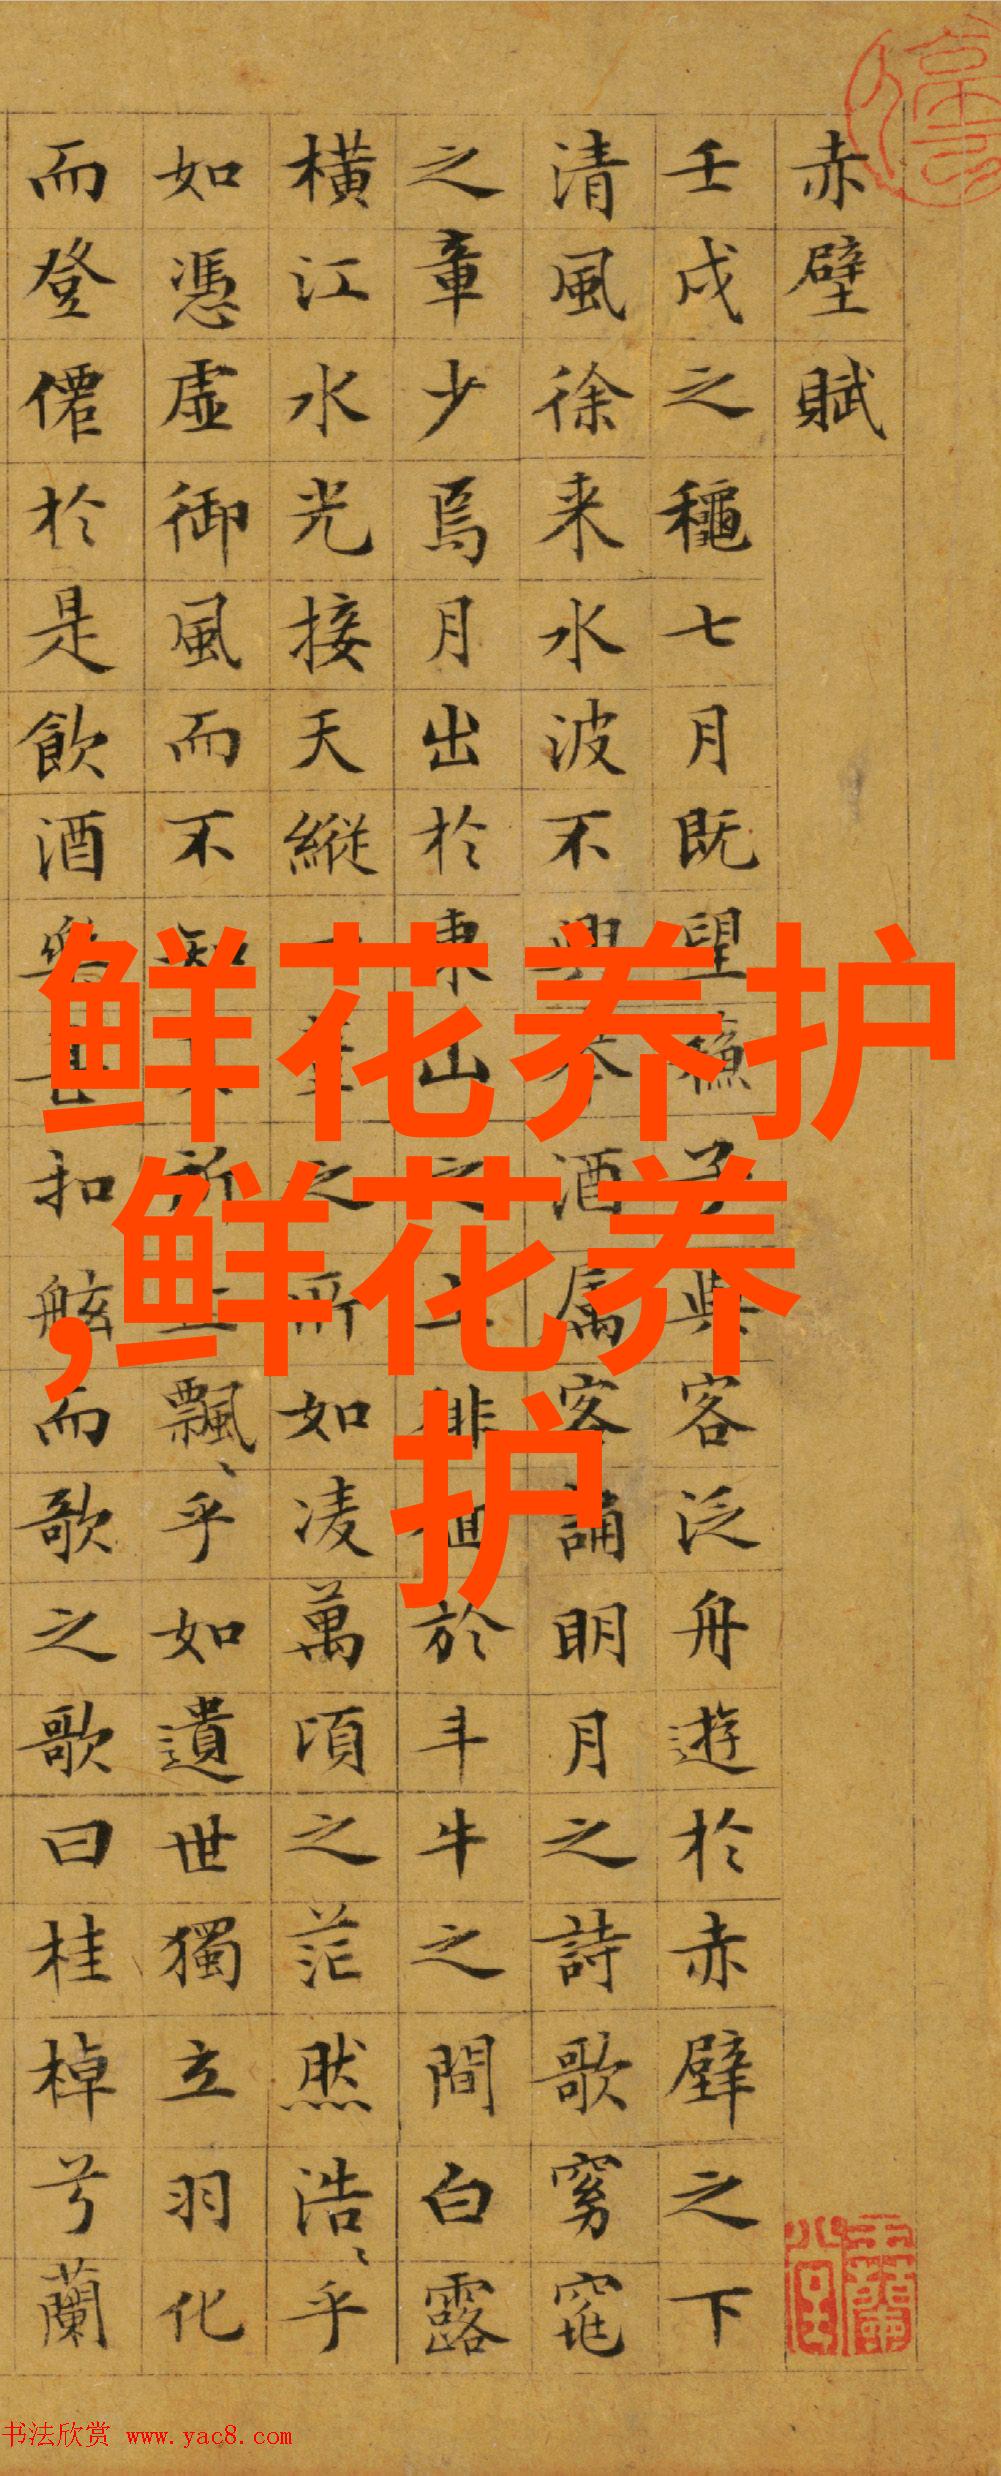 赤壁賦
壬戌之龝七月既望蘓子與客泛舟遊於赤壁之下
清風徐来水波不興舉酒属客誦明月之詩歌窈窕
之章少焉月出於東山之上徘徊於斗牛之間白露
橫江水光接天縱一葦之所如凌萬頃之茫然浩〻乎
如憑虛御風而不知其所止飄〻乎如遺世獨立羽化
而登僊於是飲酒樂甚扣舷而歌之歌曰桂棹兮蘭
鲜花养护
,鲜花养
护
书法欣赏 www.yac8.com